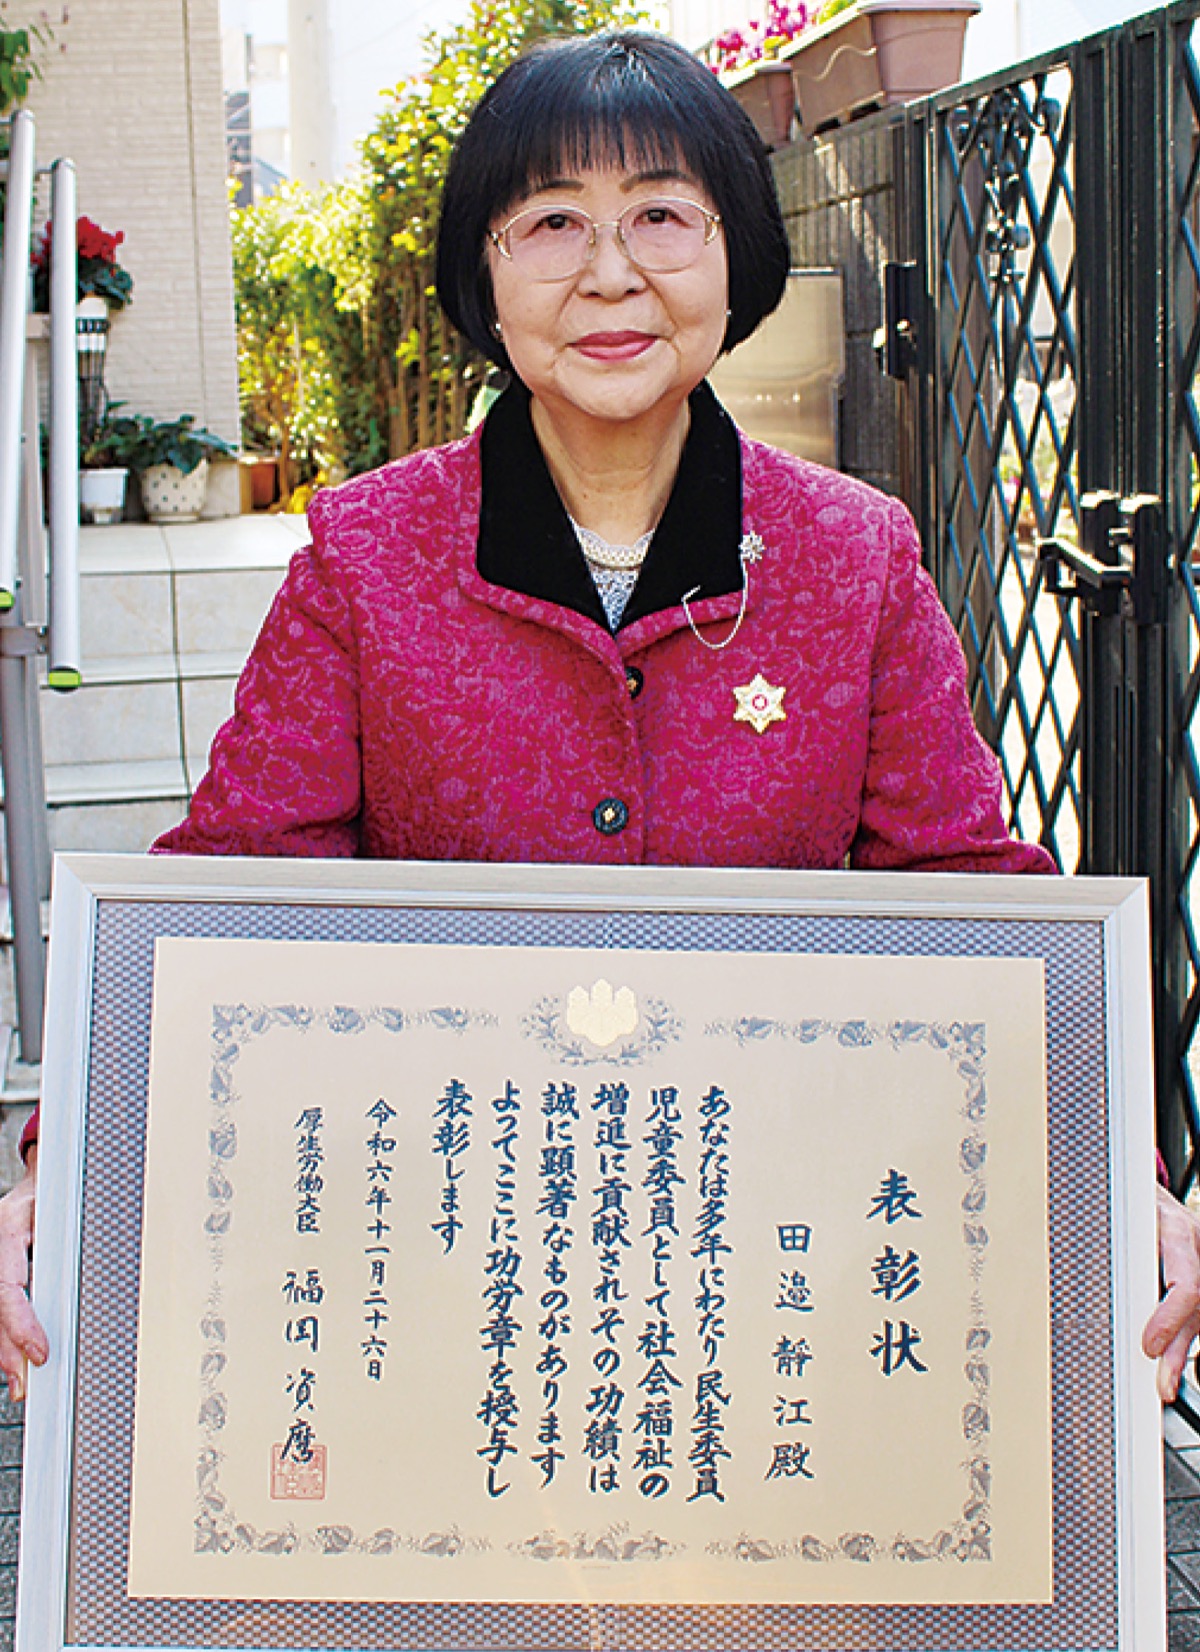 表彰状
田邉靜江殿
あなたは多年にわたり民生委員
児童委員として社会福祉の
増進に貢献されその功績は
誠に顕著なものがあります
よってここに功労章を授与し
表彰します
令和六年十一月二十六日
厚生労働大臣 福岡資麿